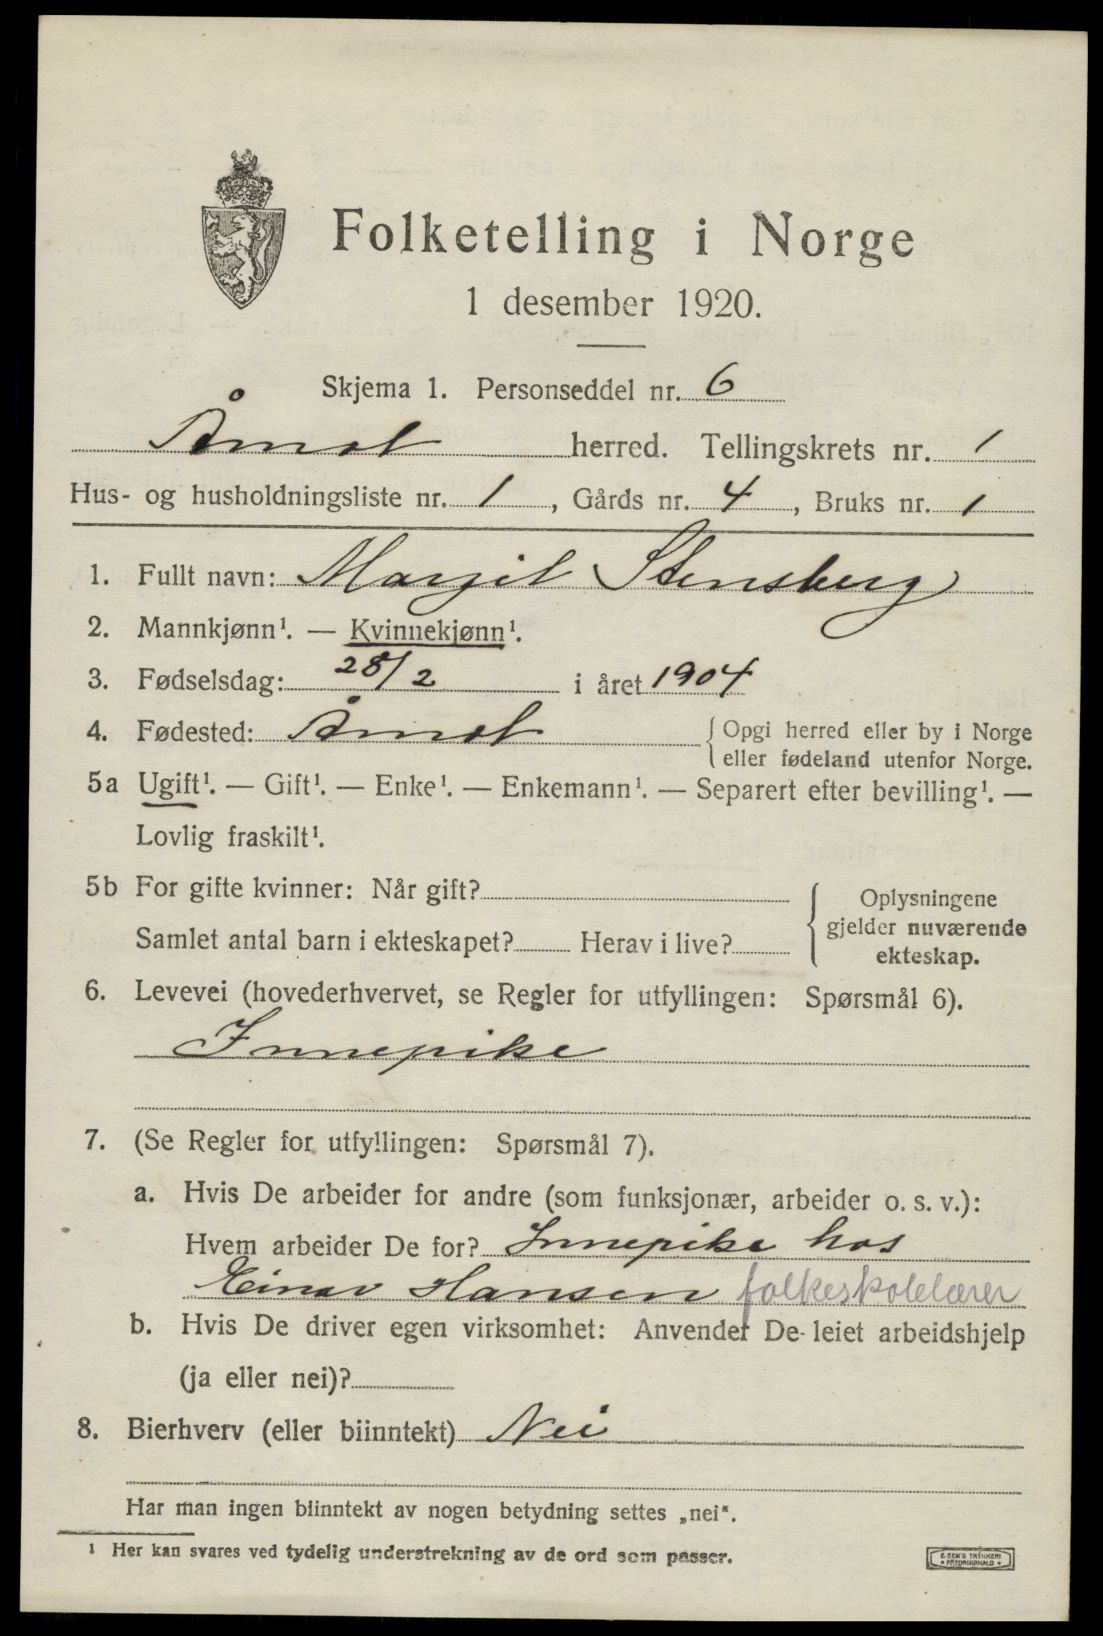 Folketelling i Norge
1 desember 1920.
Skjema 1. Personseddel nr. 6
Åmot herred. Tellingskrets nr. 1
Hus- og husholdningsliste nr. 1, Gårds nr. 4, Bruks nr. 1
1. Fullt navn: Margit Stensberg
2. Mannkjønn¹. — Kvinnekjønn¹.
3. Fødselsdag: 28/2 i året 1904
4. Fødested: Åmot {Opgi herred eller by i Norge
eller fødeland utenfor Norge.
5a Ugift¹. — Gift¹. — Enke¹. — Enkemann¹. — Separert efter bevilling¹. —
Lovlig fraskilt¹.
5b For gifte kvinner: Når gift?
Samlet antal barn i ekteskapet? Herav i live?
Oplysningene
gjelder nuværende
ekteskap.
6. Levevei (hovederhvervet, se Regler for utfyllingen: Spørsmål 6).
Innepike
7. (Se Regler for utfyllingen: Spørsmål 7).
a. Hvis De arbeider for andre (som funksjonær, arbeider o. s. v.):
Hvem arbeider De for? Innepike hos
Einar Hansen folkeskolelærer
b. Hvis De driver egen virksomhet: Anvender De leiet arbeidshjelp
(ja eller nei)?
8. Bierhverv (eller biinntekt) Nei
Har man ingen biinntekt av nogen betydning settes „nei“.
¹ Her kan svares ved tydelig understrekning av de ord som passer.
E. SEM'S TRYKKERI
FREDRIKSHALD